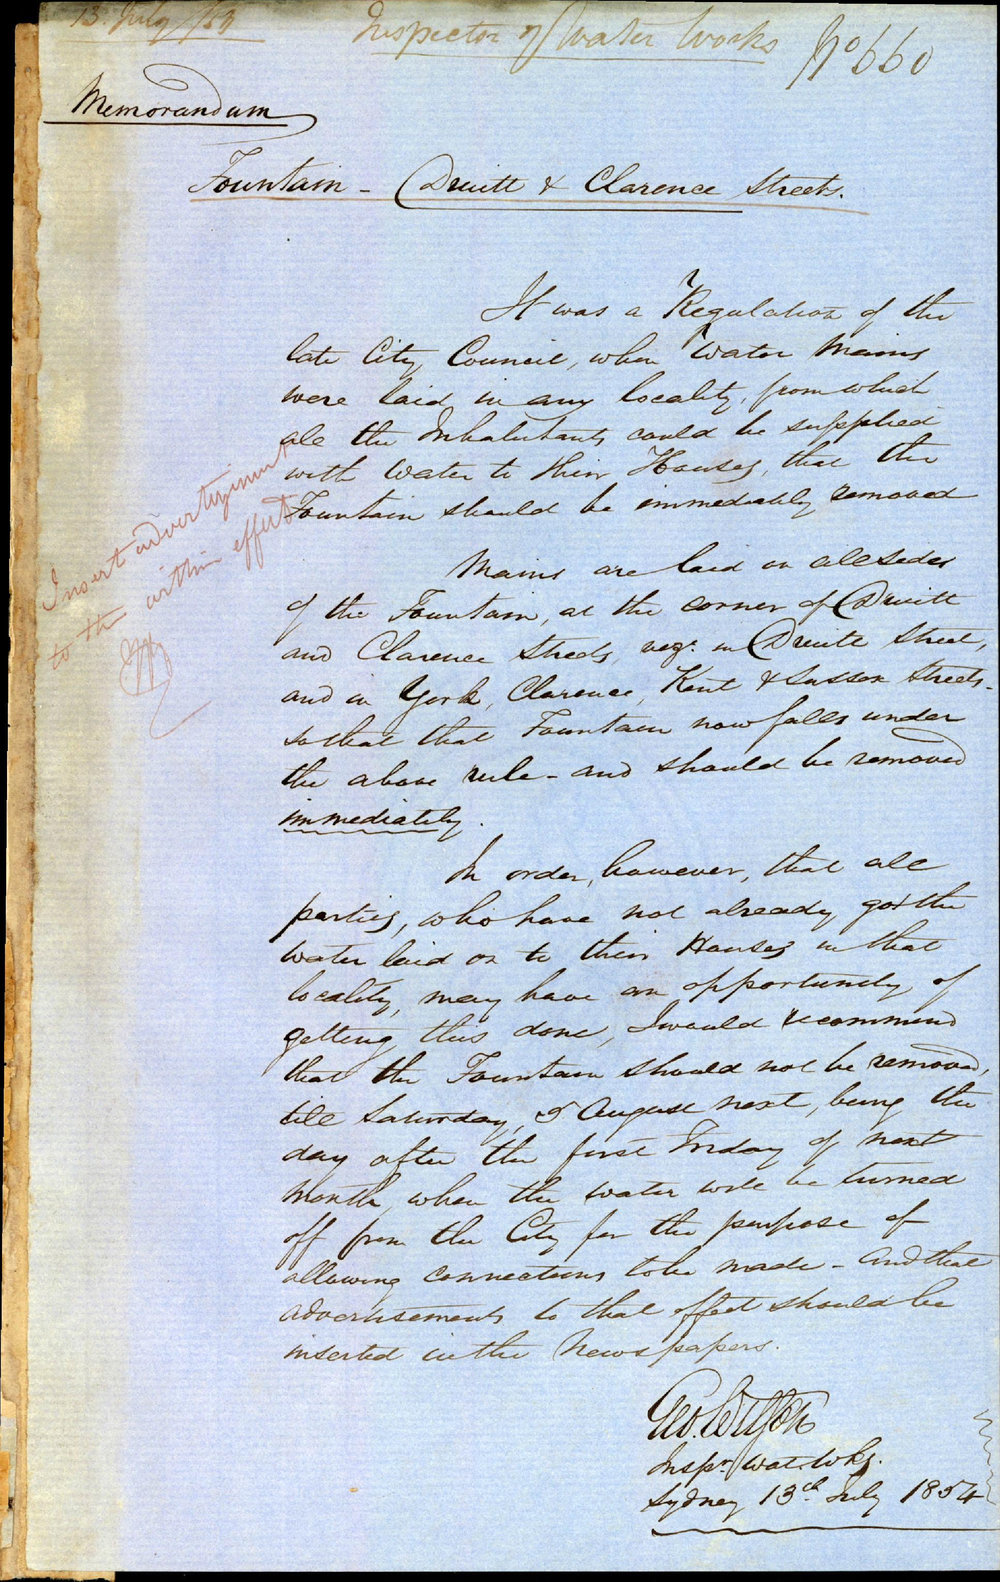 13 July /54
Inspector of Water Works
No 660
Memorandum
Fountain - Druitt & Clarence Streets.
It was a Regulation of the
late City Council, when Water Mains
were laid in any locality, from which
all the Inhabitants could be supplied
with Water to their Houses, that the
Fountain should be immediately removed
Mains are laid on all sides
of the Fountain, at the corner of Druitt
and Clarence Streets, vizt. in Druitt Street,
and in York, Clarence, Kent & Sussex Streets -
so that that Fountain now falls under
the above rule - and should be removed
immediately.
In order, however, that all
parties, who have not already got the
water laid on to their Houses in that
locality, may have an opportunity of
getting this done, I would recommend
that the Fountain should not be removed,
till Saturday, 5 August next, being the
day after the first Friday of next
Month, when the water will be turned
off from the City for the purpose of
allowing connections to be made - and that
advertisements to that effect should be
inserted in the Newspapers.
Insert advertizement
to the within effect
Inspr. Wat. Wks.
Sydney 13th July 1854